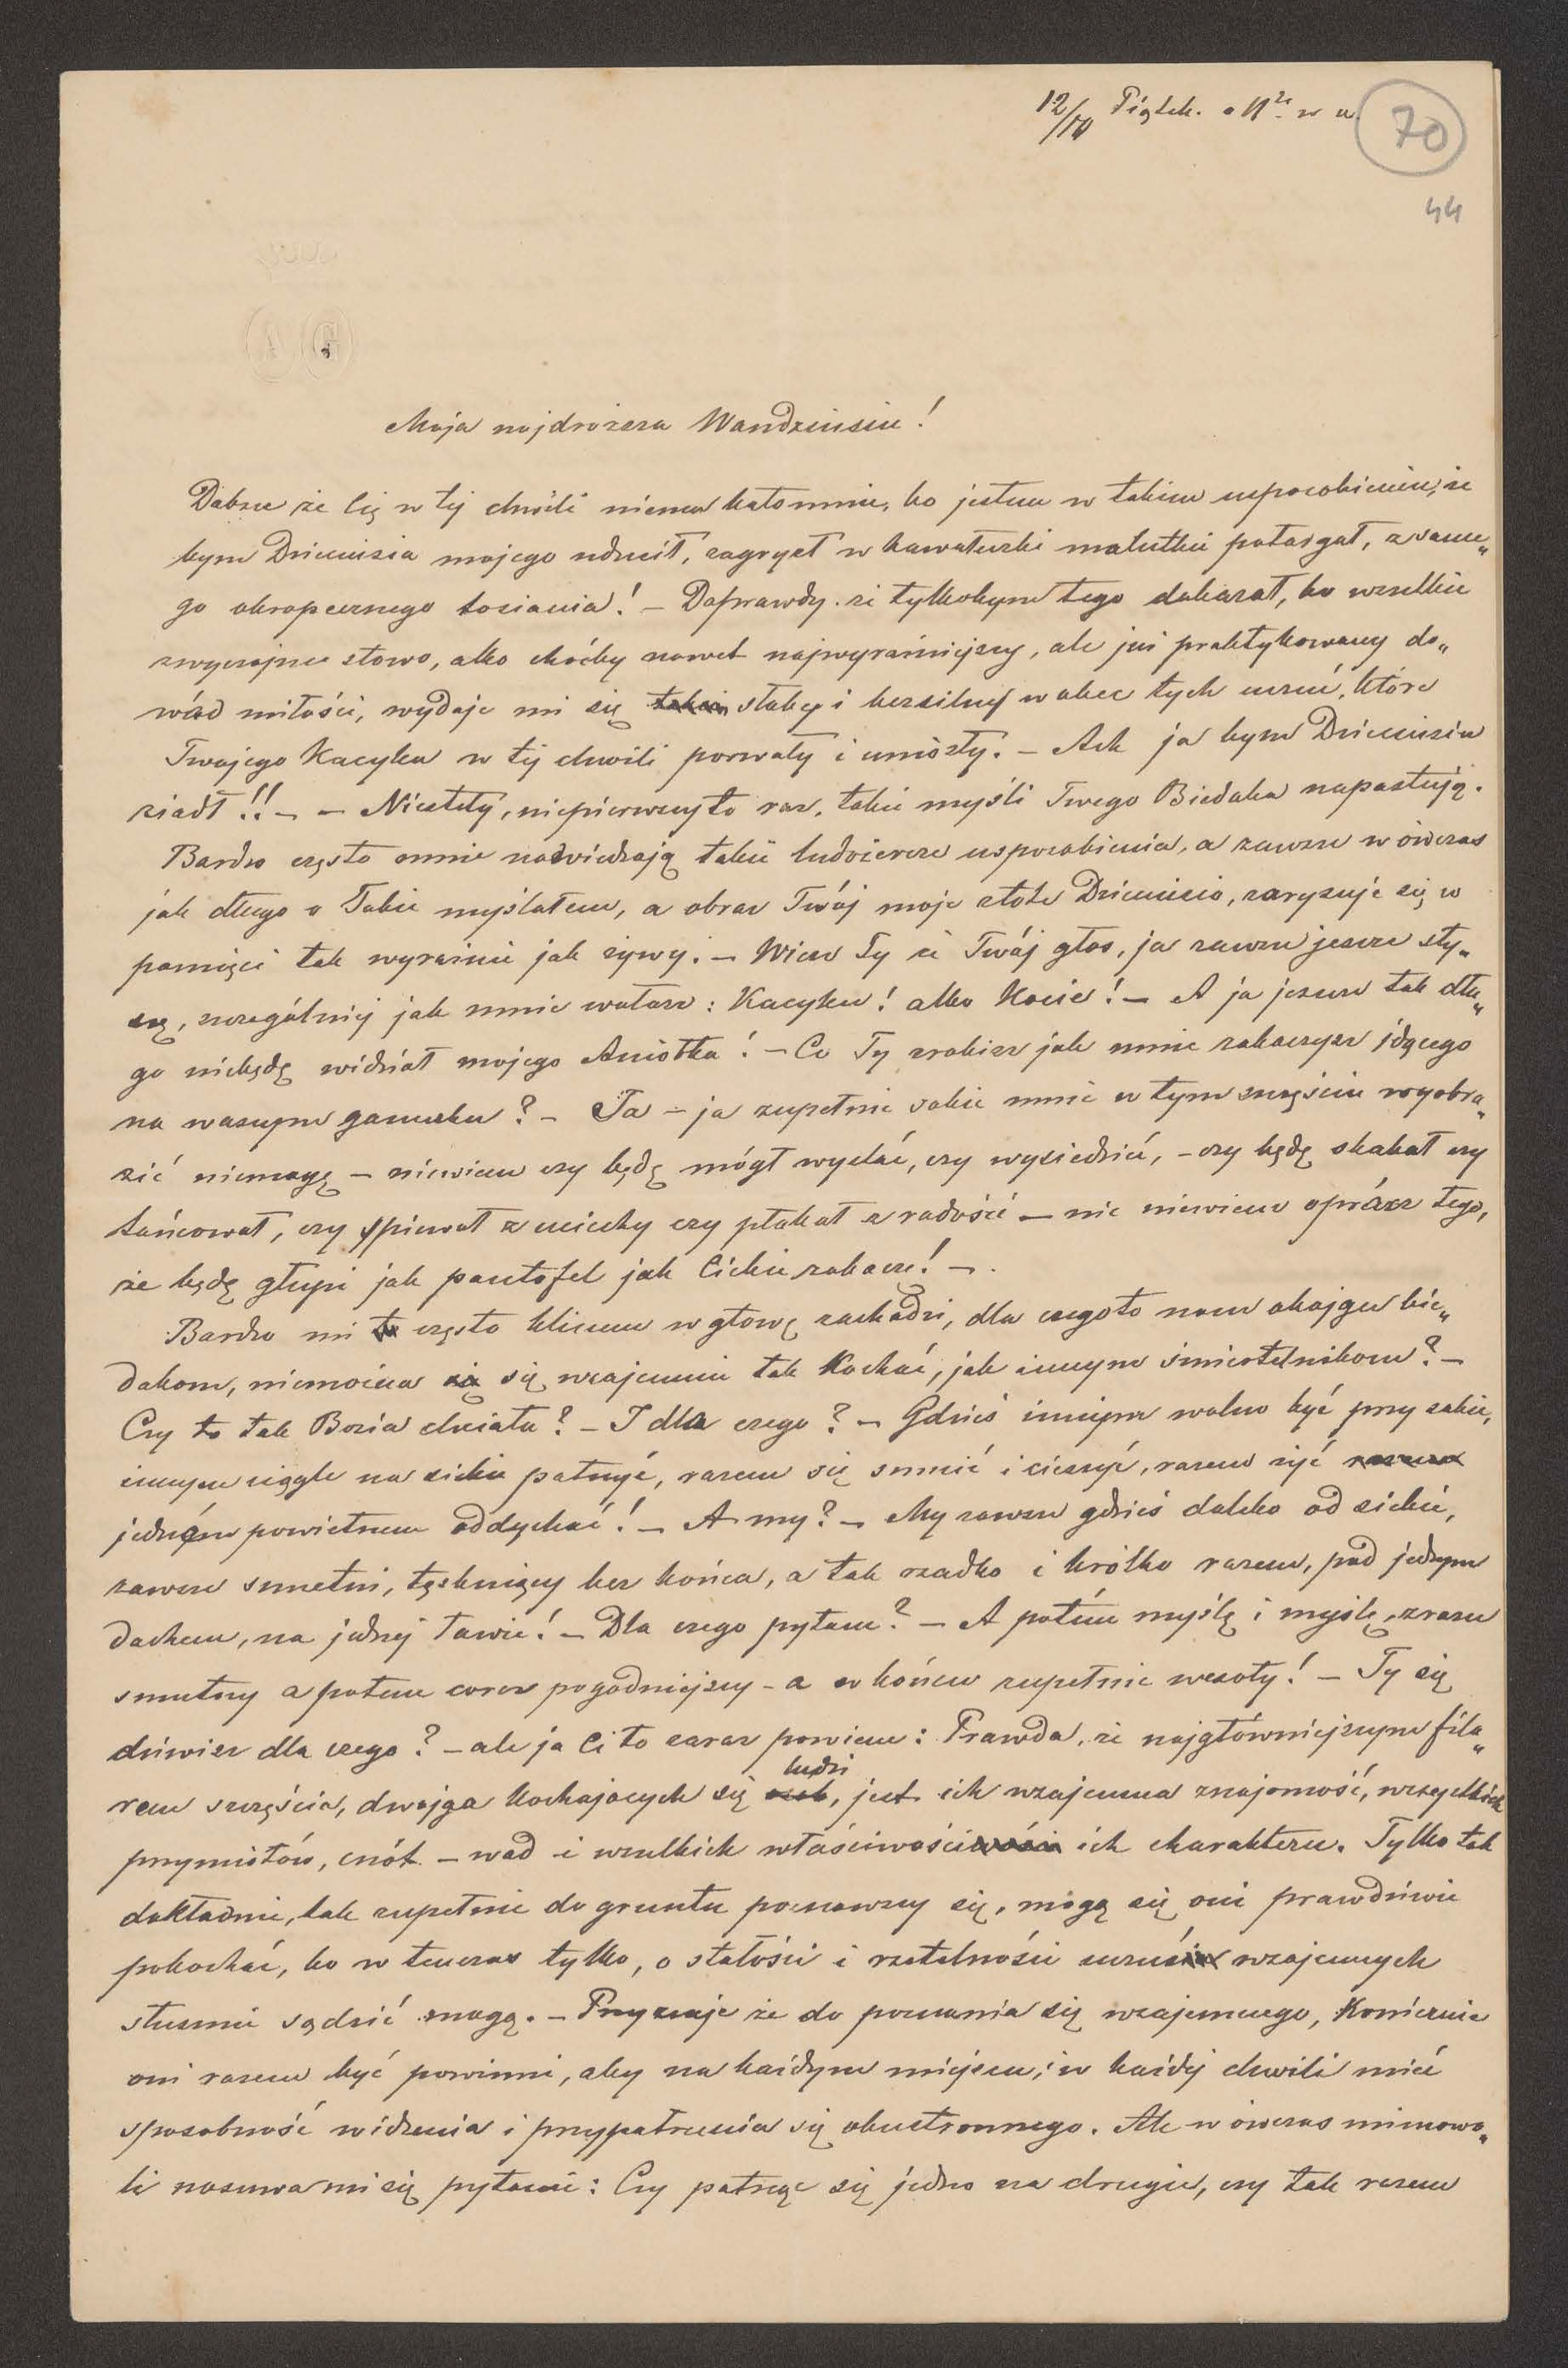 12/IV Piątek. o 11ej w n.
70
44
Moja najdroższa Wandziusiu!
Dobrze że Cię w tej chwili niema koło mnie, bo jestem w takiem usposobieniu, że
bym Dzieciusia mojego udusił, zagryzł w kawałuszki malutkie potargał, z same„
go okropecznego kosiania! – Doprawdy, że tylkobym tego dokazał, bo wszelkie
zwyczajne słowo, albo choćby nawet najwyraźniejszy, ale już praktykowany do„
wód miłości, wydaje mi się słaby i bezsilny wobec tych uczuć, które
Twojego Kacyka w tej chwili porwały i uniosły. – Ach ja bym Dzieciusia
ziadł!! – – Niestety, niepierwszy to raz, takie myśli Twego Biedaka napastują.
Bardzo często mnie nadwiedzają takie ludożercze usposobienia, a zawsze w ówczas
jak długo o Tobie myślałem, a obraz Twój moje złote Dzieciusio, zarysuje się w
pamięci tak wyraźnie jak żywy. – Wiesz Ty że Twój głos, ja zawsze jeszcze sły„
szę, szczególniej jak mnie wołasz: Kacyku! albo Kocie! – A ja jeszcze tak dłu„
go niebędę widział mojego Aniołka! – Co Ty zrobisz jak mnie zobaczysz idącego
na waszym ganeczku? – Ja – ja zupełnie sobie mnie w tym szczęściu wyobra„
zić niemogę – niewiem czy będę mógł wystać, czy wysiedzieć, – czy będę skakał czy
tańcował, czy śpiewał z uciechy czy płakał z radości – nic niewiem oprócz tego,
że będę głupi jak pantofel jak Ciebie zobaczę! –.
Bardzo mi często klinem w głowę zachodzi, dla czegoto nam obojgu bie„
dakom, niemożna się wzajemnie tak Kochać, jak innym śmiertelnikom? –
Czy to tak Bozia chciała? – I dla czego? – Gdzieś innym wolno być przy sobie,
innym ciągle na siebie patrzyć, razem się smucić i cieszyć, razem żyć
jednym powietrzem oddychać! – A my? – My zawsze gdzieś daleko od siebie,
zawsze smutni, tęskniący bez końca, a tak rzadko i krótko razem, pod jednym
dachem, na jednej ławie! – Dla czego pytam? – A potém myślę i myślę, zrazu
smutny a potem coraz pogodniejszy – a w końcu zupełnie wesoły! – Ty się
dziwisz dla czego? – ale ja Ci to zaraz powiem: Prawda, że najgłówniejszym fila„
rem szczęścia, dwojga kochających się ludzi, jest ich wzajemna znajomość, wszystkich
przymiotów, cnót – wad i wszelkich właściwości ich charakteru. Tylko tak
dokładnie, tak zupełnie do gruntu poznawszy się, mogą się oni prawdziwie
pokochać, bo w tenczas tylko, o stałości i rzetelności uczuć wzajemnych
słusznie sądzić mogą. – Przyznaje że do poznania się wzajemnego, Koniecznie
oni razem być powinni, aby na każdym miejscu, i w każdej chwili mieć
sposobność widzenia i przypatrzenia się obustronnego. Ale w ówczas mimowo„
li nasuwa mi się pytanie: Czy patrząc się jedno na drugie, czy tak razem